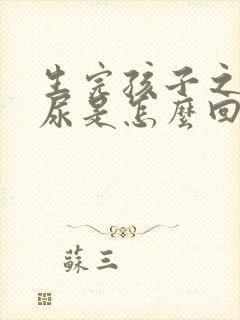 生完孩子之
尿是怎麼回
蘇三